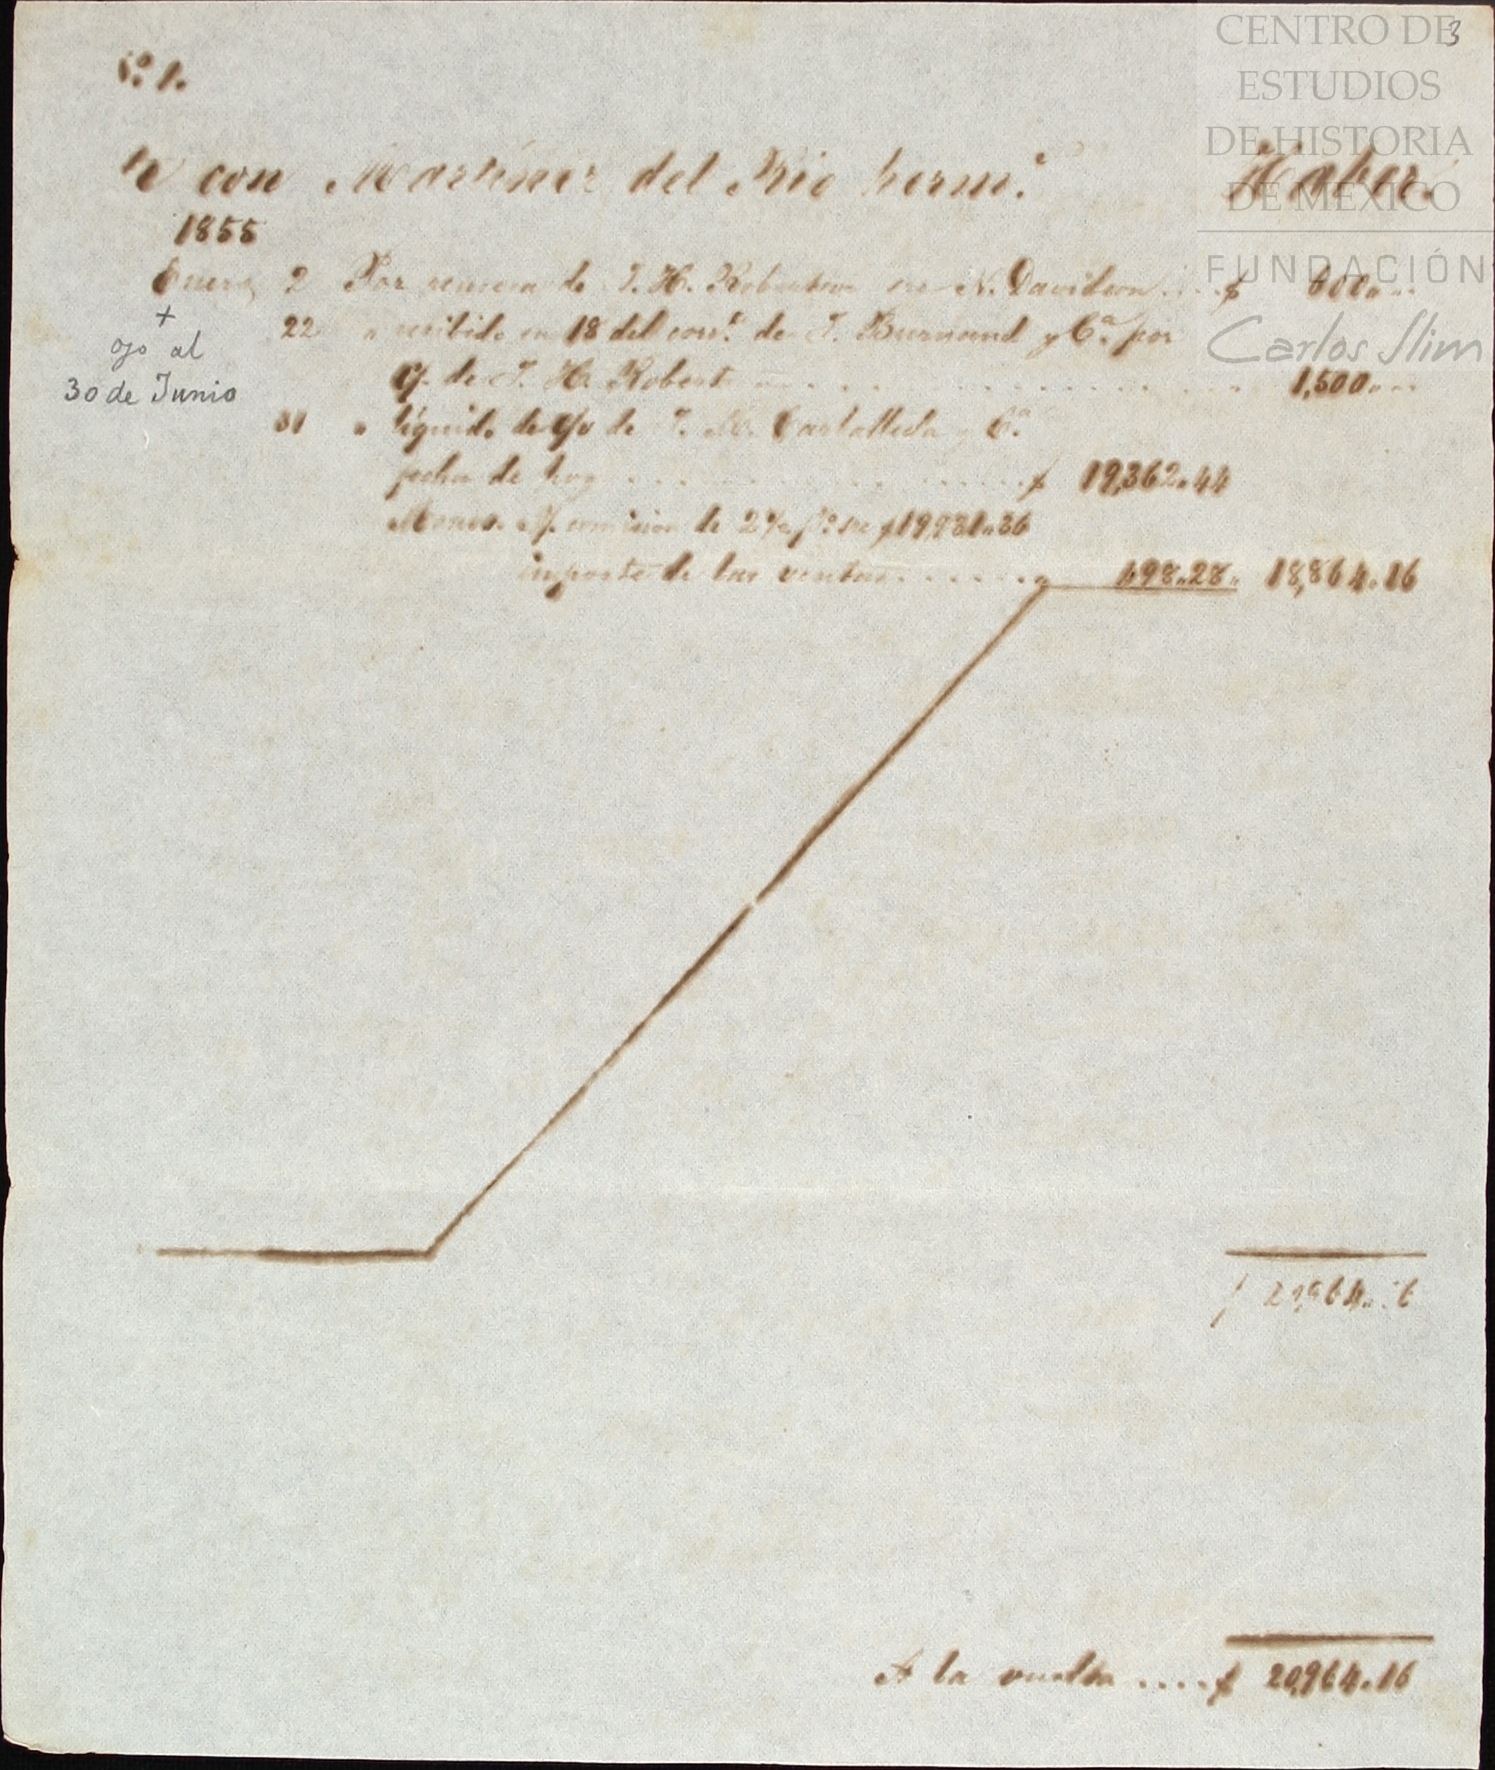 3
CENTRO DE
ESTUDIOS
DE HISTORIA
DE MÉXICO
FUNDACIÓN
Carlos Slim
Nº 1.
con Martinez del Rio herm.ˢ Haber.
1855
Enero 2 Por remesa de J. H. Robertson N. Davidson .... $ 600 „ ..
+
ojo al
30 de Junio
22 „ recibido en 18 del corr.ᵗᵉ de J. Burnand y C.ª por
c/ de J. H. Robert ........ 1,500 „ ..
31 „ líquido de c/v de J. M. Castañeda y C.ª
fecha de hoy ........ $ 19,362 „ 44
Menos comision de 2½ p% $ 19,931 „ 36
importe de las ventas ...... „ 498 „ 28 „ 18,864 „ 16
$ 20,964 „ 16
A la vuelta .... $ 20,964 „ 16